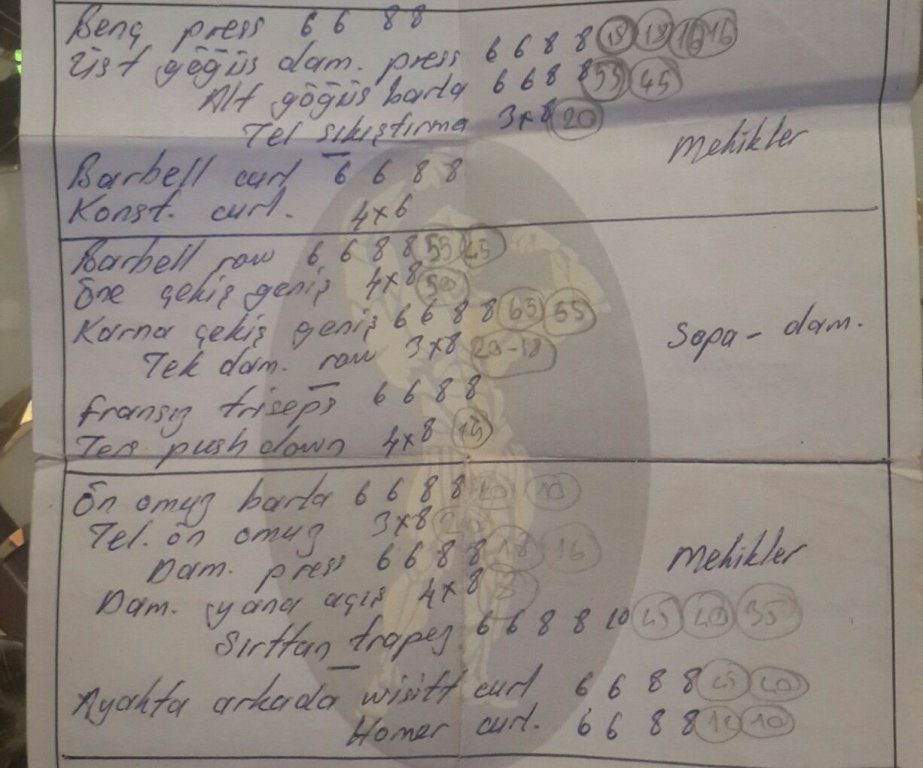 Benç press 6 6 8 8
Üst göğüs dam. press 6 6 8 8 18 18 16 16
Alt göğüs barla 6 6 8 8 55 45
Tel sıkıştırma 3x8 20
mehikler
Barbell curl 6 6 8 8
Konst. curl. 4x6
Barbell row 6 6 8 8 55 45
Öne çekiş geniş 4x8 50
Karna çekiş geniş 6 6 8 8 65 55
Sopa - dam.
Tek dam. row 3x8 20-18
fransız triseps 6 6 8 8
Ters push down 4x8 15
Ön omuz barla 6 6 8 8 10
Tel. ön omuz 3x8
Dam. press 6 6 8 8 18 16
mehikler
Dam. yana açış 4x8
Sırttan trapez 6 6 8 8 10 45 40 35
Ayakta arkada wisitt curl 6 6 8 8 45 40
Homer curl. 6 6 8 8 12 10